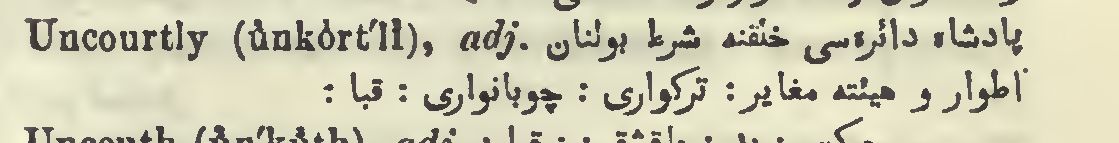 Uncourtly (ůnkȯrt′lỉ), adj. پادشاه دائره‌سی خلقنه شرط بولنان
اطوار و هیئته مغایر : ترکواری : چوبانواری : قبا :